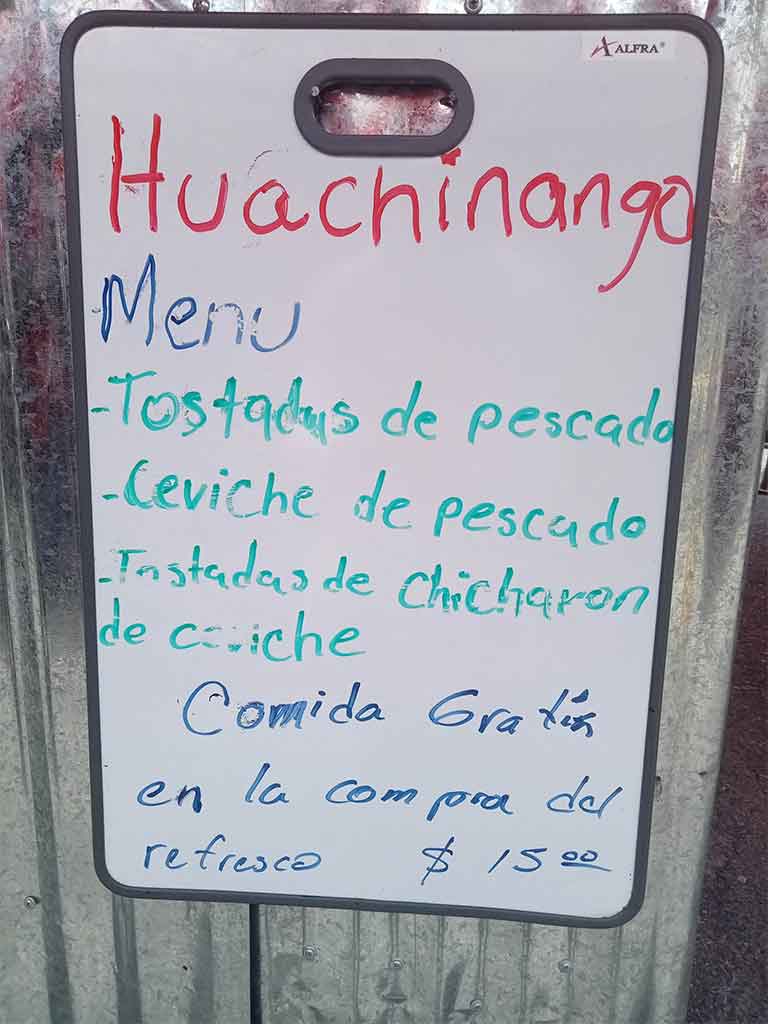 ALFRA®
Huachinango
Menu
-Tostadas de pescado
-Ceviche de pescado
-Tostadas de chicharon
de ceviche
Comida Gratis
en la compra del
refresco $ 15.00